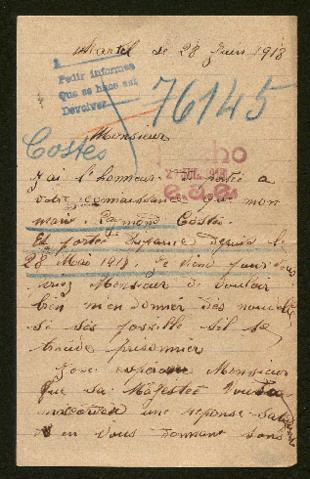 Martel le 28 Juin 1918
Pedir informes
Que se hace est
Devolver
76145
Costes
Monsieur
J'ai l'honneur de porter a
votre connaissance que mon
mari Raymond Costes
Est porté disparue depuis le
28 Mai 1918. Je viens pour vous
Monsieur de vouloir
bien m'en donner des nouvelle
si ses possible s'il se
trouve prisonnier
J'ose espérer Monsieur
que sa Majesteé
une reponse
en vous donnant tous